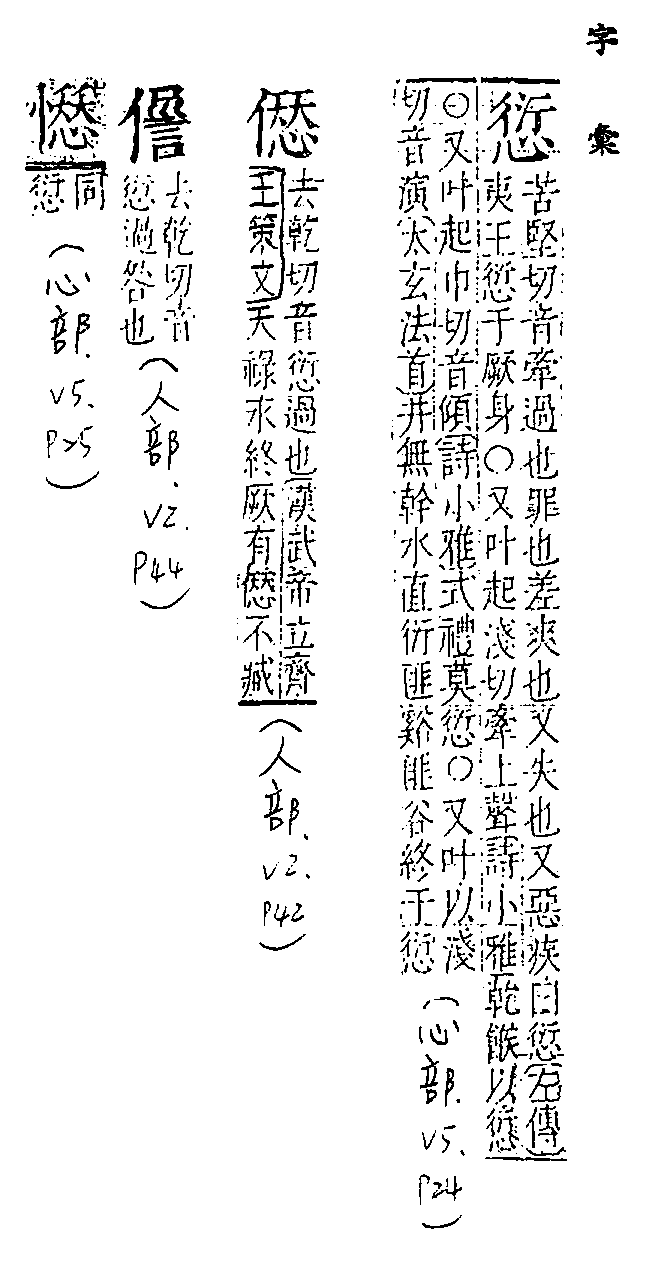 字彙
愆
苦堅切音牽過也罪也差爽也又失也又惡疾曰愆左傳
夷王愆于厥身○又叶起淺切牽上聲詩小雅乾餱以愆
○又叶起巾切音傾詩小雅式禮莫愆○又叶以淺
切音演太玄法首井無幹水直衍匪谿匪谷終于愆
（心部.v5.P24）
僁
去乾切音愆過也漢武帝立齊
王策文天祿永終厥有僁不臧
（人部.v2.P42）
去乾切音
愆過咎也
（人部.v2.P44）
同
愆
（心部.v5.P25）